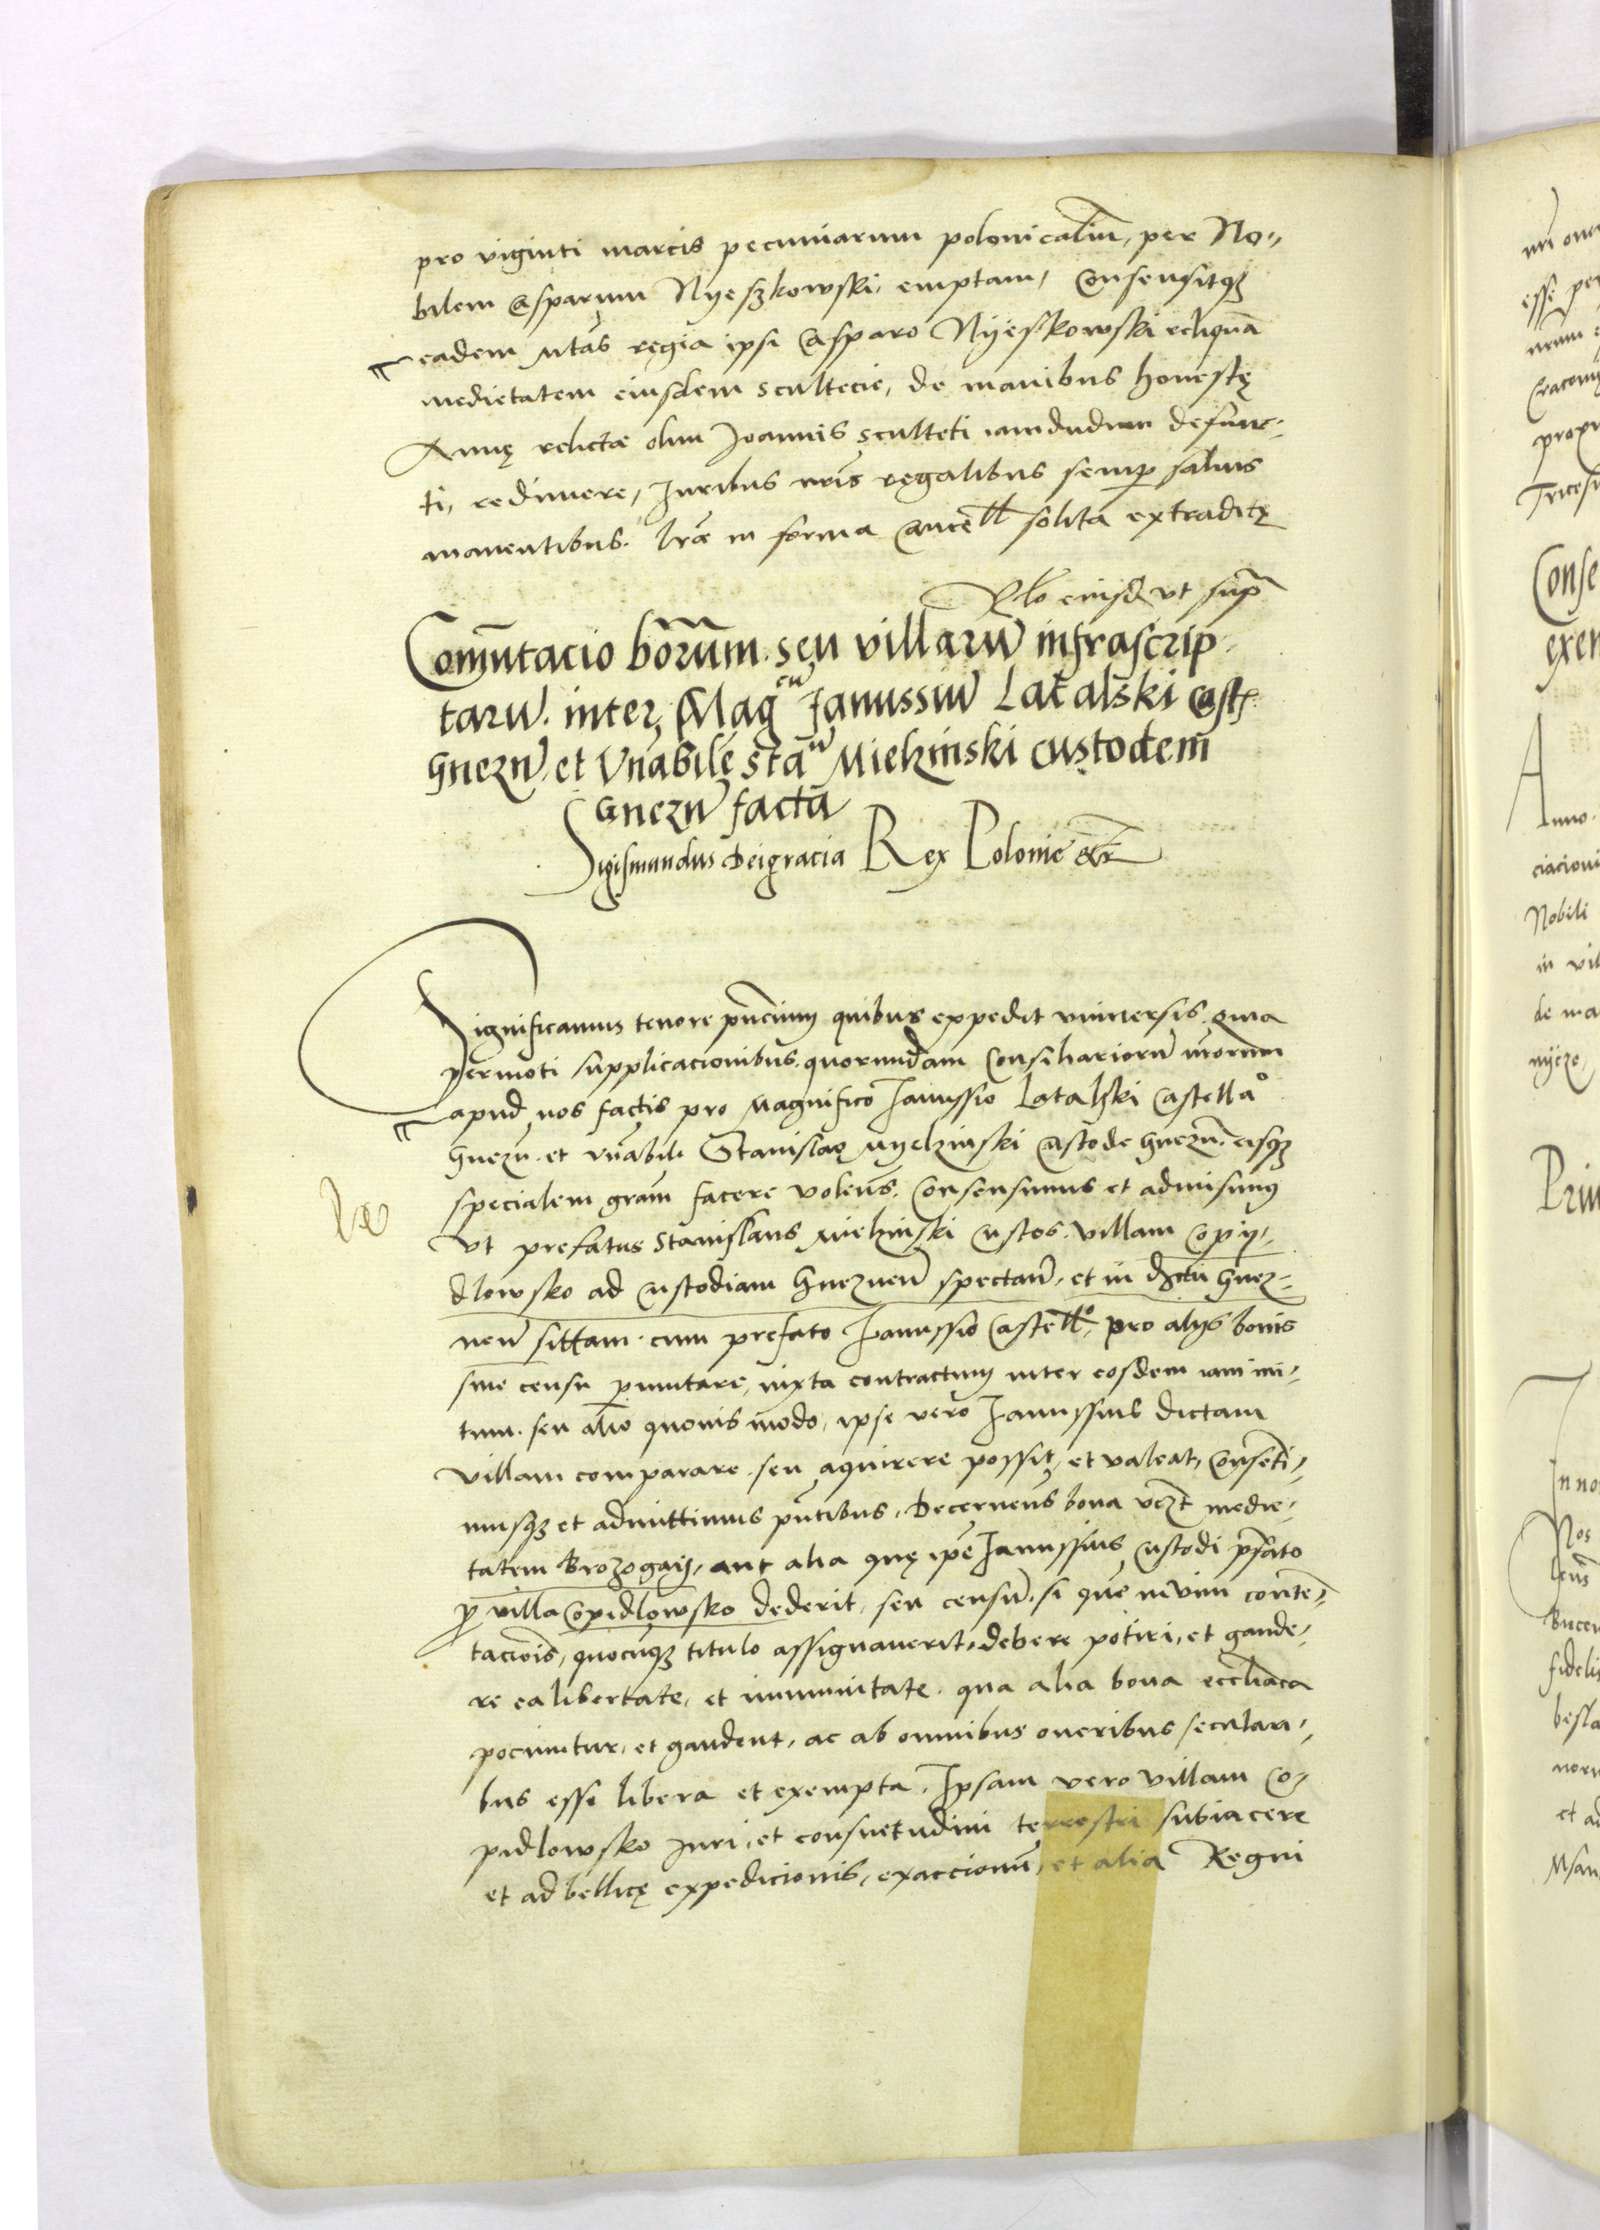 pro viginti marcis pecuniarum polonicaliū, per No-
bilem Casparum Nyeszkowski, emptam, Consensitq3
eadem Mtās regia ipsi Casparo Nyëskowski reliquā
medietatem eiusdem scultecie, de manibus honestę
Annę relictæ olim Joannis sculteti iamdudum defunc-
ti, redimere, Juribus nr̄is regalibus semp salvis
manentibus. Lr̄æ in forma Cancell solita extraditę
Rlō eiusd ut supr̄
Com̄utacio bōrūm. seu villarū infrascrip-
tarū. inter, Mag cū Janussiū Latalski Cast
Gnezn̄, et Vn̄abilē Stā ū Mielzinski custodem
Gnezn̄ factā
Sigismundus Dei gracia Rex Polonie etc
Significamus tenore pn̄cium quibus expedit universis. quia
permoti supplicacionibus. quorundam Consiliariorū nr̄orum
apud nos factis pro Magnifico Janussio Latalski Castellaᵒ
Gnezn̄. et Vn̄abili Stanislao Myelzinski Custode Gnezn̄. eisq3
specialem gram̄ facere volen̄s. Consensimus et admisimus
Ut prefatus Stanislaus Mielzinski Custos. villam Copy-
dlowsko ad Custodiam Gneznen̄ spectan̄. et in Dr̄ctu Gnez-
nen̄ sittam. cum prefato Janussio Castellᵒ, pro alys bonis
sine censu p̱mutare, iuxta contractum inter eosdem iam ini-
tum. seu alio quovis modo, ipse vero Janussius dictam
villam comparare. seu aquirere possit, et valeat, Consēti-
musq3 et admittimus pn̄tibus. Decernen̄s bona vcz̄t medie-
tatem Brozogay, aut alia quę ip̄e Janussius Custodi pr̄fato
ꝓ villa Copidlowsko dederit, seu censū. si quē in vim contē-
tacōis, quocuq3 titulo assignaverit, debere potiri, et gaude-
re ea libertate, et immunitate. qua alia bona eccl̄iaca
pociuntur, et gaudent, ac ab omnibus oneribus seculari-
bus esse libera et exempta. Ipsam vero villam Co-
pidlowsko Juri, et consuetudini terrestri subiacere
et ad bellicę expedicionis, exaccionū, et alia Regni